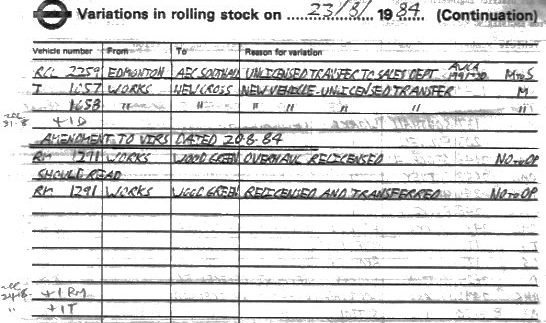 Variations in rolling stock on 23/8/ 1984 (Continuation)
Vehicle number From To Reason for variation
RCL 2259 EDMONTON AEC SOUTHALL UNLICENSED TRANSFER TO SALES DEPT M to S
T 1057 WORKS NEW CROSS NEW VEHICLE - UNLICENSED TRANSFER M
1058 " " " " " " "
31-8 +1D
AMENDMENT TO VIRS DATED 20-8-84
RM 1291 WORKS WOOD GREEN OVERHAUL RELICENSED NO to OP
SHOULD READ
RM 1291 WORKS WOOD GREEN RELICENSED AND TRANSFERRED NO to OP
24-8 +1RM
" +1T